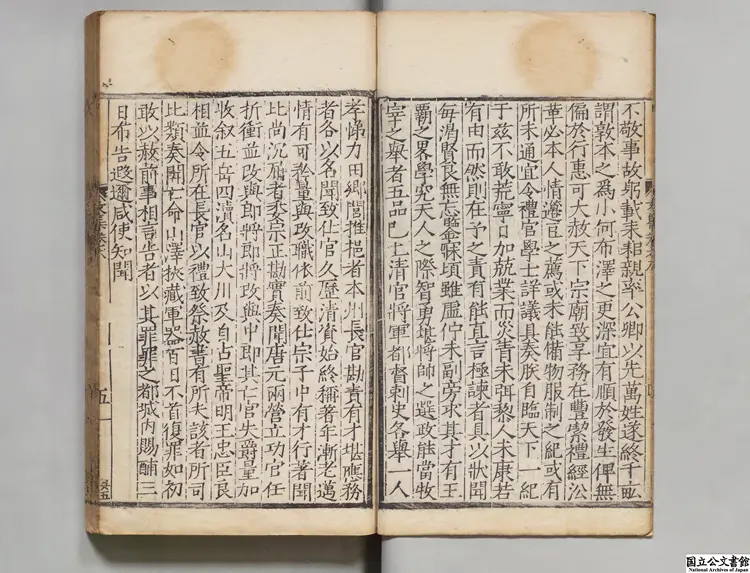 不敬事故躬載耒耜親率公卿以先萬姓遂終千畝
謂敦本之爲小何布澤之更深宜有順於發生俾無
偏於行惠可大赦天下宗廟致享務在豐潔禮經沿
革必本人情邊豆之薦或未能備物服制之紀或有
所未通宜令禮官學士詳議具奏朕自臨天下一紀
于茲不敢荒寧日加兢業而災眚未弭黎人未康若
有由而然則在予之責有能直言極諫者具以狀聞
每渴賢良無忘鑒寐頃雖虛佇未副旁求其才有王
霸之畧學究天人之際智勇堪將帥之選政能當牧
宰之舉者五品已上清官將軍都督刺史各舉一人
孝悌力田鄉閭推挹者本州長官勘責有才堪應務
者各以名聞致仕官久歷清貲始終稱著年漸老邁
情有可矜量與改職依前致仕宗子中有才行著聞
比尚沉屈者委宗正勘實奏聞唐元兩營立功官任
折衝並改與郎將郎將改與中郎其亡官失爵量加
收叙五嶽四瀆名山大川及自古聖帝明王忠臣良
相並令所在長官以禮致祭赦書有所未該者所司
比類奏聞亡命山澤挾藏軍器百日不首復罪如初
敢以赦前事相言告者以其罪罪之都城內賜酺三
日布告遐邇咸使知聞
五
国立公文書館
National Archives of Japan